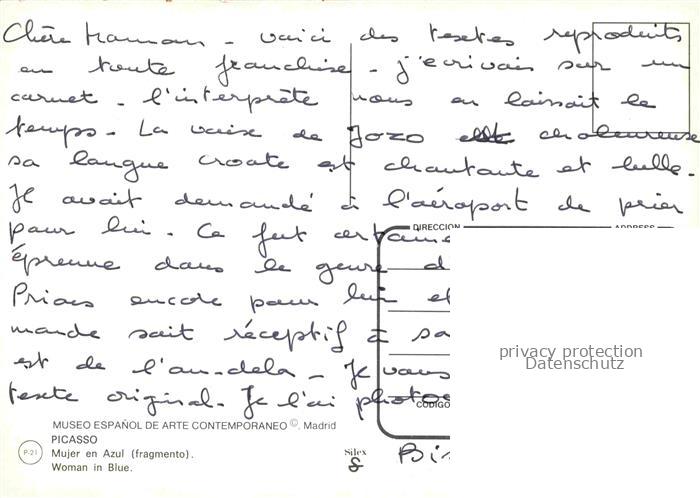 Chère Maman - voici des textes reproduits
en toute franchise - j'écrivais sur un
carnet - l'interprète nous en laissait le
temps - La voix de Jozo est chaleureuse
sa langue croate est chantante et belle -
Il avait demandé à l'aéroport de prier
pour lui. Ce fut
DIRECCION ADDRESS
épreuve dans le genre
Prions encore pour lui et
monde soit réceptif à sa
est de l'au-delà - Je vous
texte original. Je l'ai
CODIGO
privacy protection
Datenschutz
MUSEO ESPAÑOL DE ARTE CONTEMPORANEO ©. Madrid
PICASSO
P-21 Mujer en Azul (fragmento).
Woman in Blue.
Silex
8